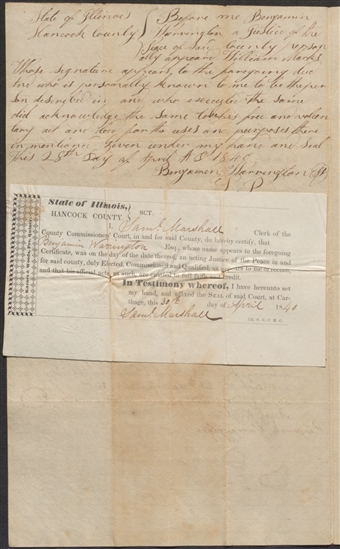 State of Illinois } Before me Benjamin
Hancock County } Warrington a Justice of the
Peace of said County person
ally appeared William Marks
Whose signature appears to the foregoing deed
and who is personally known to me to be the per
son described in and who executed the same
did acknowledge the same to be his free and volun
tary act and deed for the uses and purposes there
in mentioned Given under my hand and seal
this 28th day of April AD 1840
Benjamin Warrington JP
State of Illinois, }
HANCOCK COUNTY. } SCT.
I, Saml Marshall Clerk of the
County Commissioners' Court, in and for said County, do hereby certify, that
Benjamin Warrington Esq. whose name appears to the foregoing
Certificate, was on the day of the date thereof, an acting Justice of the Peace in and
for said county, duly Elected, Commissioned and Qualified, as
and that his official acts, as such, are entitled to full faith and credit.
In Testimony whereof, I have hereunto set
my hand, and affixed the SEAL of said Court, at Car-
thage, this 30th day of April 1840
Saml Marshall